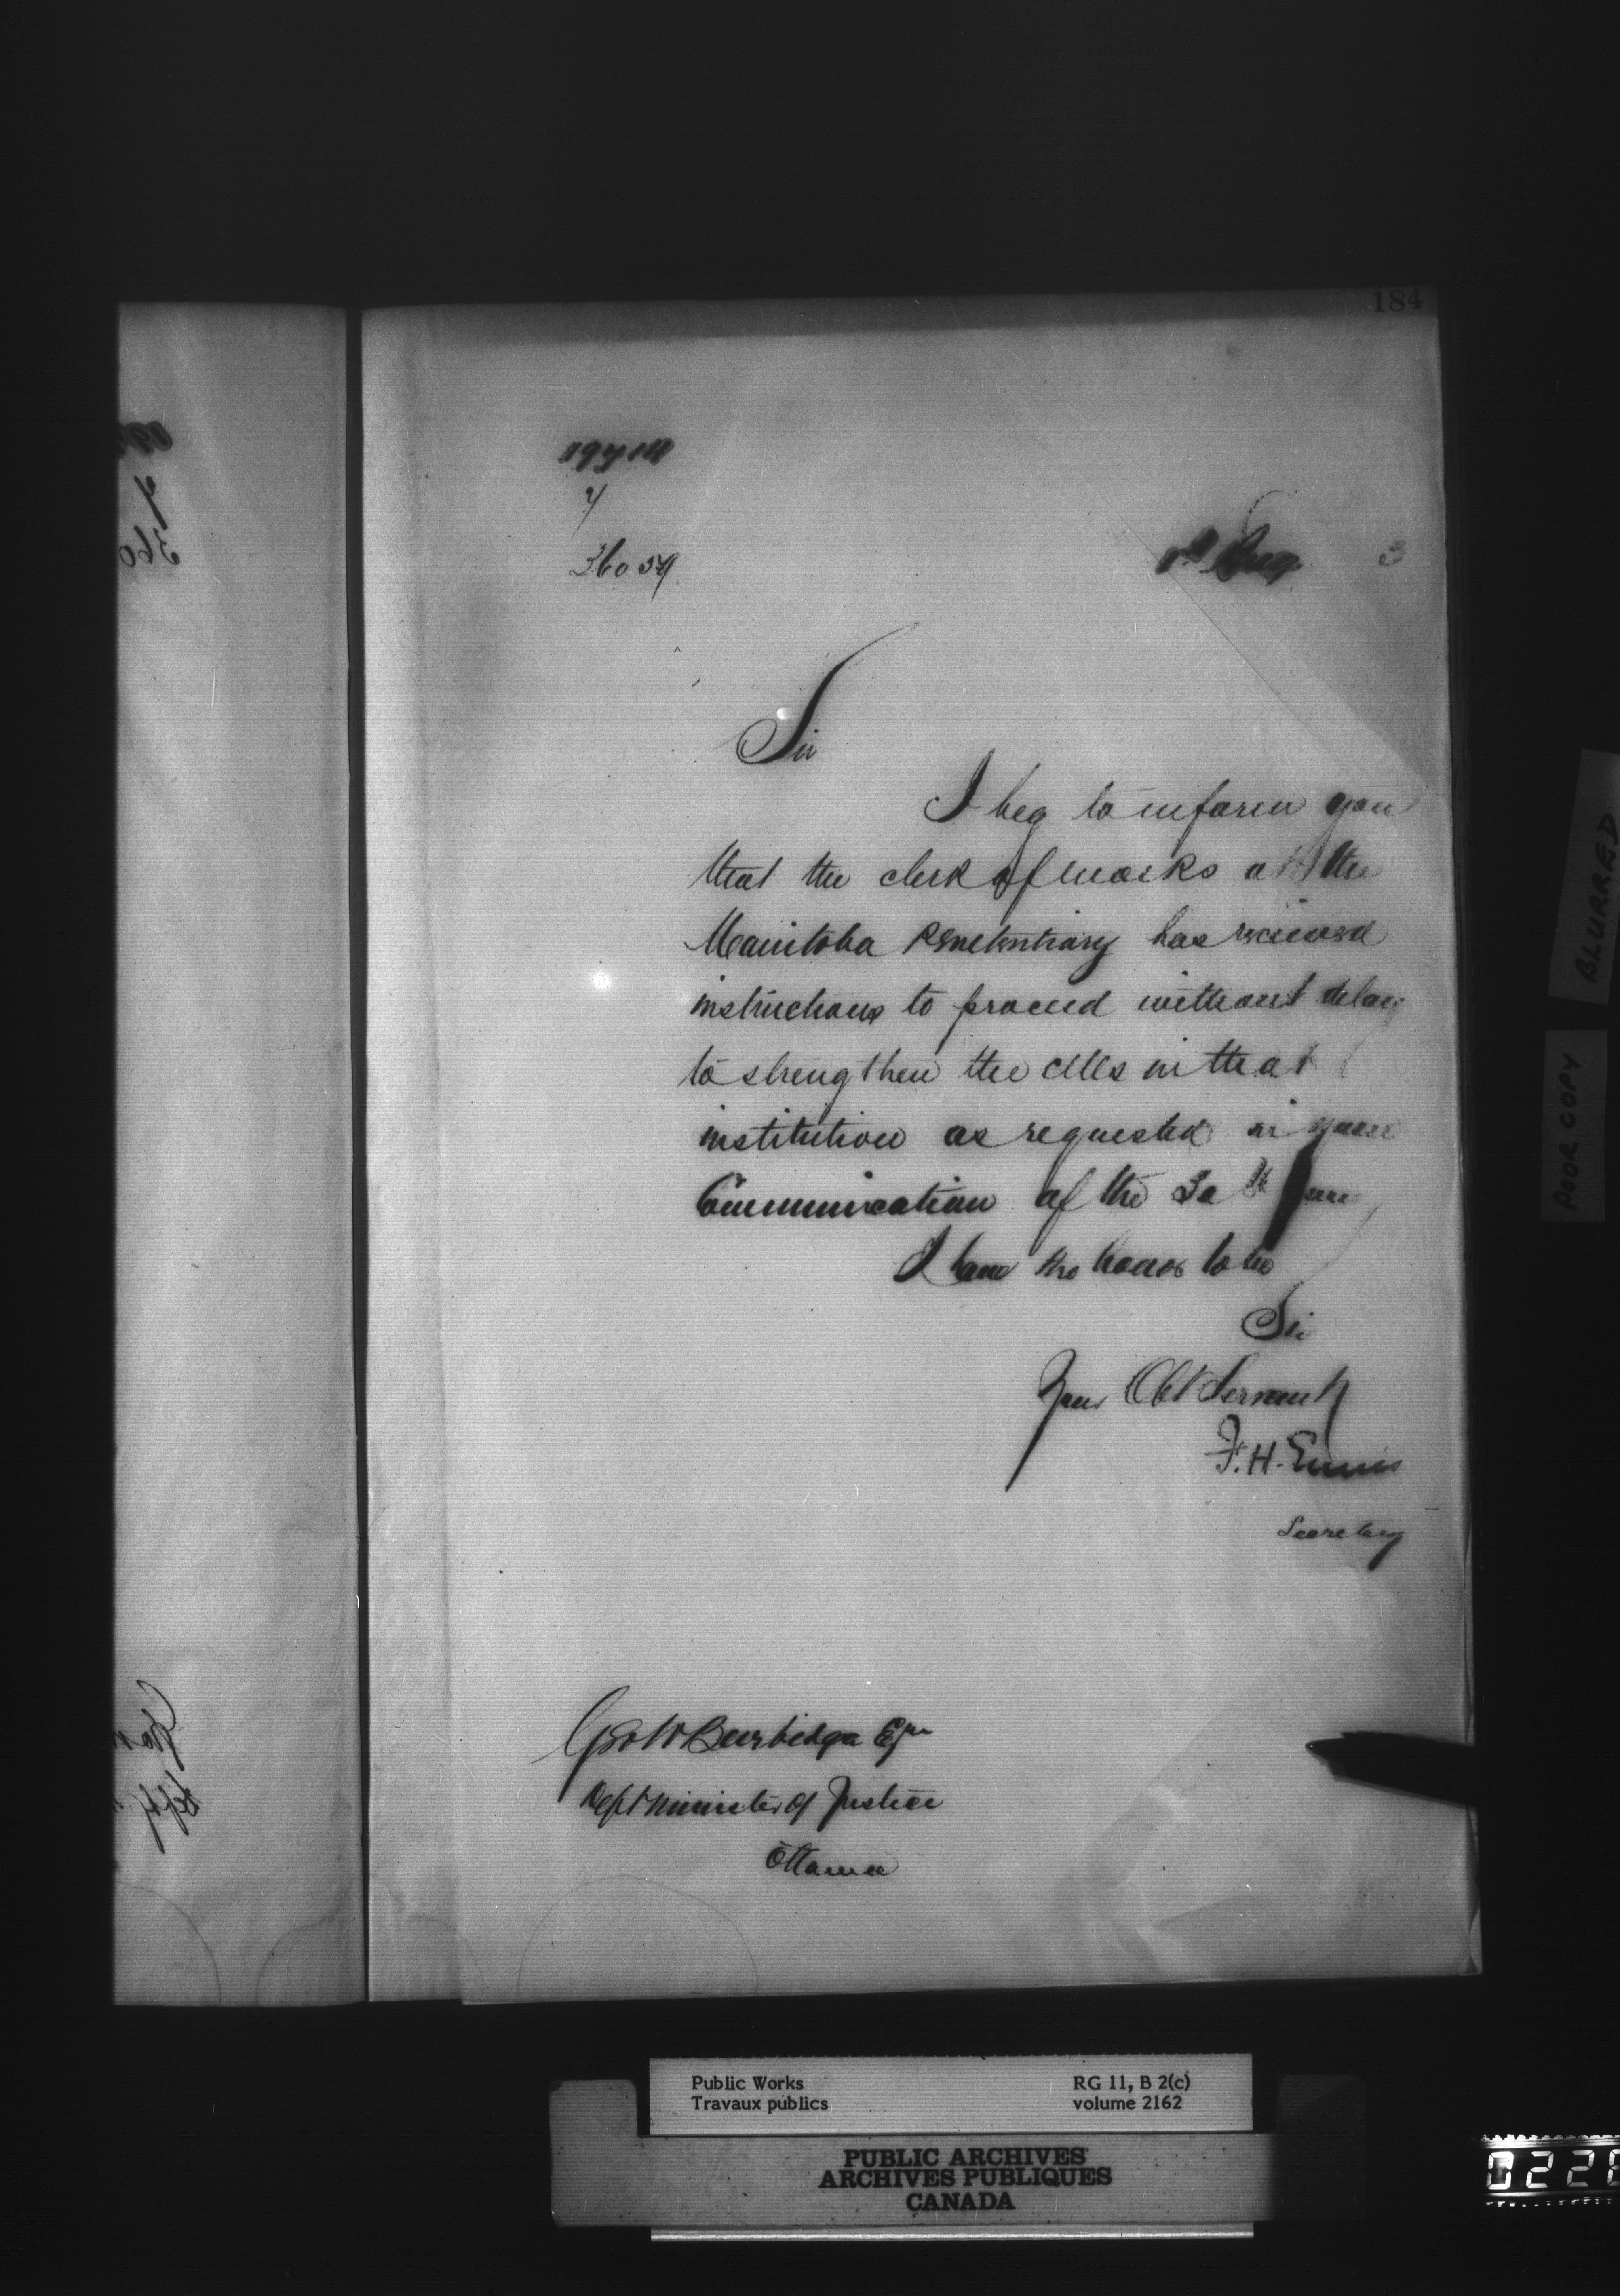 184
36059
1st Aug. 3
Sir
I beg to inform you
that the clerk of works at the
Manitoba Penetentiary has received
instructions to proceed without delay
to strengthen the cells in that
institution as requested in your
Communication of the 30th June
I have the honor to be
Sir
Your Obt Servant
F. H. Ennis
Secretary
Geo W Burbidge Esqre
Dept Minister of Justice
Ottawa
BLURRED
POOR COPY
Public Works RG 11, B 2(c)
Travaux publics volume 2162
PUBLIC ARCHIVES
ARCHIVES PUBLIQUES
CANADA